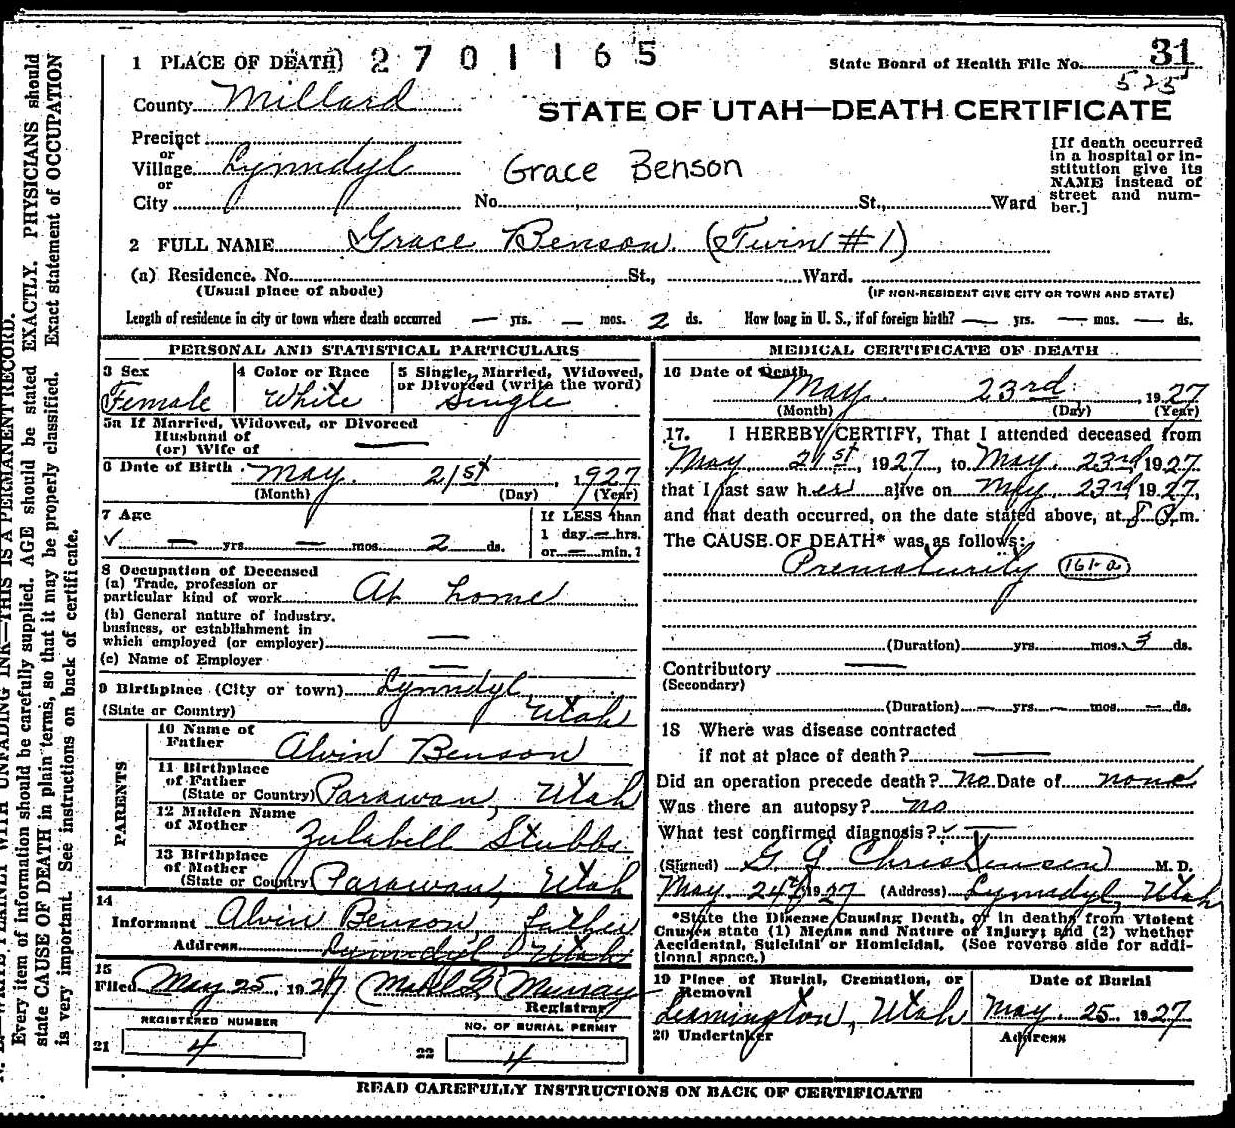 1 PLACE OF DEATH) 2701165
State Board of Health File No. 31
525
County Millard
STATE OF UTAH—DEATH CERTIFICATE
Precinct
or
Village Lynndyl
or
City
Grace Benson
No. St., Ward
[If death occurred
in a hospital or in-
stitution give its
NAME instead of
street and num-
ber.]
2 FULL NAME Grace Benson. (Twin #1)
(a) Residence. No. St., Ward.
(Usual place of abode) (IF NON-RESIDENT GIVE CITY OR TOWN AND STATE)
Length of residence in city or town where death occurred — yrs. — mos. 2 ds. How long in U. S., if of foreign birth? — yrs. — mos. — ds.
PERSONAL AND STATISTICAL PARTICULARS
3 Sex
Female
4 Color or Race
White
5 Single, Married, Widowed,
or Divorced (write the word)
Single
5a If Married, Widowed, or Divorced
Husband of
(or) Wife of —
6 Date of Birth May. 21st, 1927
(Month) (Day) (Year)
7 Age
✓ — yrs — mos. 2 ds.
If LESS than
1 day — hrs.
or — min.?
8 Occupation of Deceased
(a) Trade, profession or
particular kind of work At home
(b) General nature of industry,
business, or establishment in
which employed (or employer) —
(c) Name of Employer —
9 Birthplace (City or town) Lynndyl,
(State or Country) Utah
PARENTS
10 Name of
Father Alvin Benson
11 Birthplace
of Father
(State or Country) Parawan, Utah
12 Maiden Name
of Mother Zulabell Stubbs
13 Birthplace
of Mother
(State or Country) Parawan, Utah
14
Informant Alvin Benson, father
Address Lynndyl Utah
15
Filed May 25, 1927 Murray
Registrar
REGISTERED NUMBER
21 4
NO. OF BURIAL PERMIT
22 4
MEDICAL CERTIFICATE OF DEATH
16 Date of Death
May. 23rd. 1927
(Month) (Day) (Year)
17. I HEREBY CERTIFY, That I attended deceased from
May 21st, 1927, to May. 23rd, 1927
that I last saw her alive on May. 23rd, 1927,
and that death occurred, on the date stated above, at 8 P.m.
The CAUSE OF DEATH* was as follows:
Prematurity (161-a)
(Duration) yrs. mos. 3 ds.
Contributory —
(Secondary)
(Duration) — yrs. — mos. — ds.
18 Where was disease contracted
if not at place of death? —
Did an operation precede death? no Date of none
Was there an autopsy? no
What test confirmed diagnosis? ✓ —
(Signed) G. J. Christensen M. D.
May. 24th 1927 (Address) Lynndyl, Utah
*State the Disease Causing Death, or in deaths from Violent
Causes state (1) Means and Nature of Injury; and (2) whether
Accidental, Suicidal or Homicidal. (See reverse side for addi-
tional space.)
19 Place of Burial, Cremation, or
Removal
Leamington, Utah
Date of Burial
May. 25. 1927
20 Undertaker
Address
READ CAREFULLY INSTRUCTIONS ON BACK OF CERTIFICATE
WRITE PLAINLY WITH UNFADING INK—THIS IS A PERMANENT RECORD.
Every item of information should be carefully supplied. AGE should be stated EXACTLY. PHYSICIANS should
state CAUSE OF DEATH in plain terms, so that it may be properly classified. Exact statement of OCCUPATION
is very important. See instructions on back of certificate.